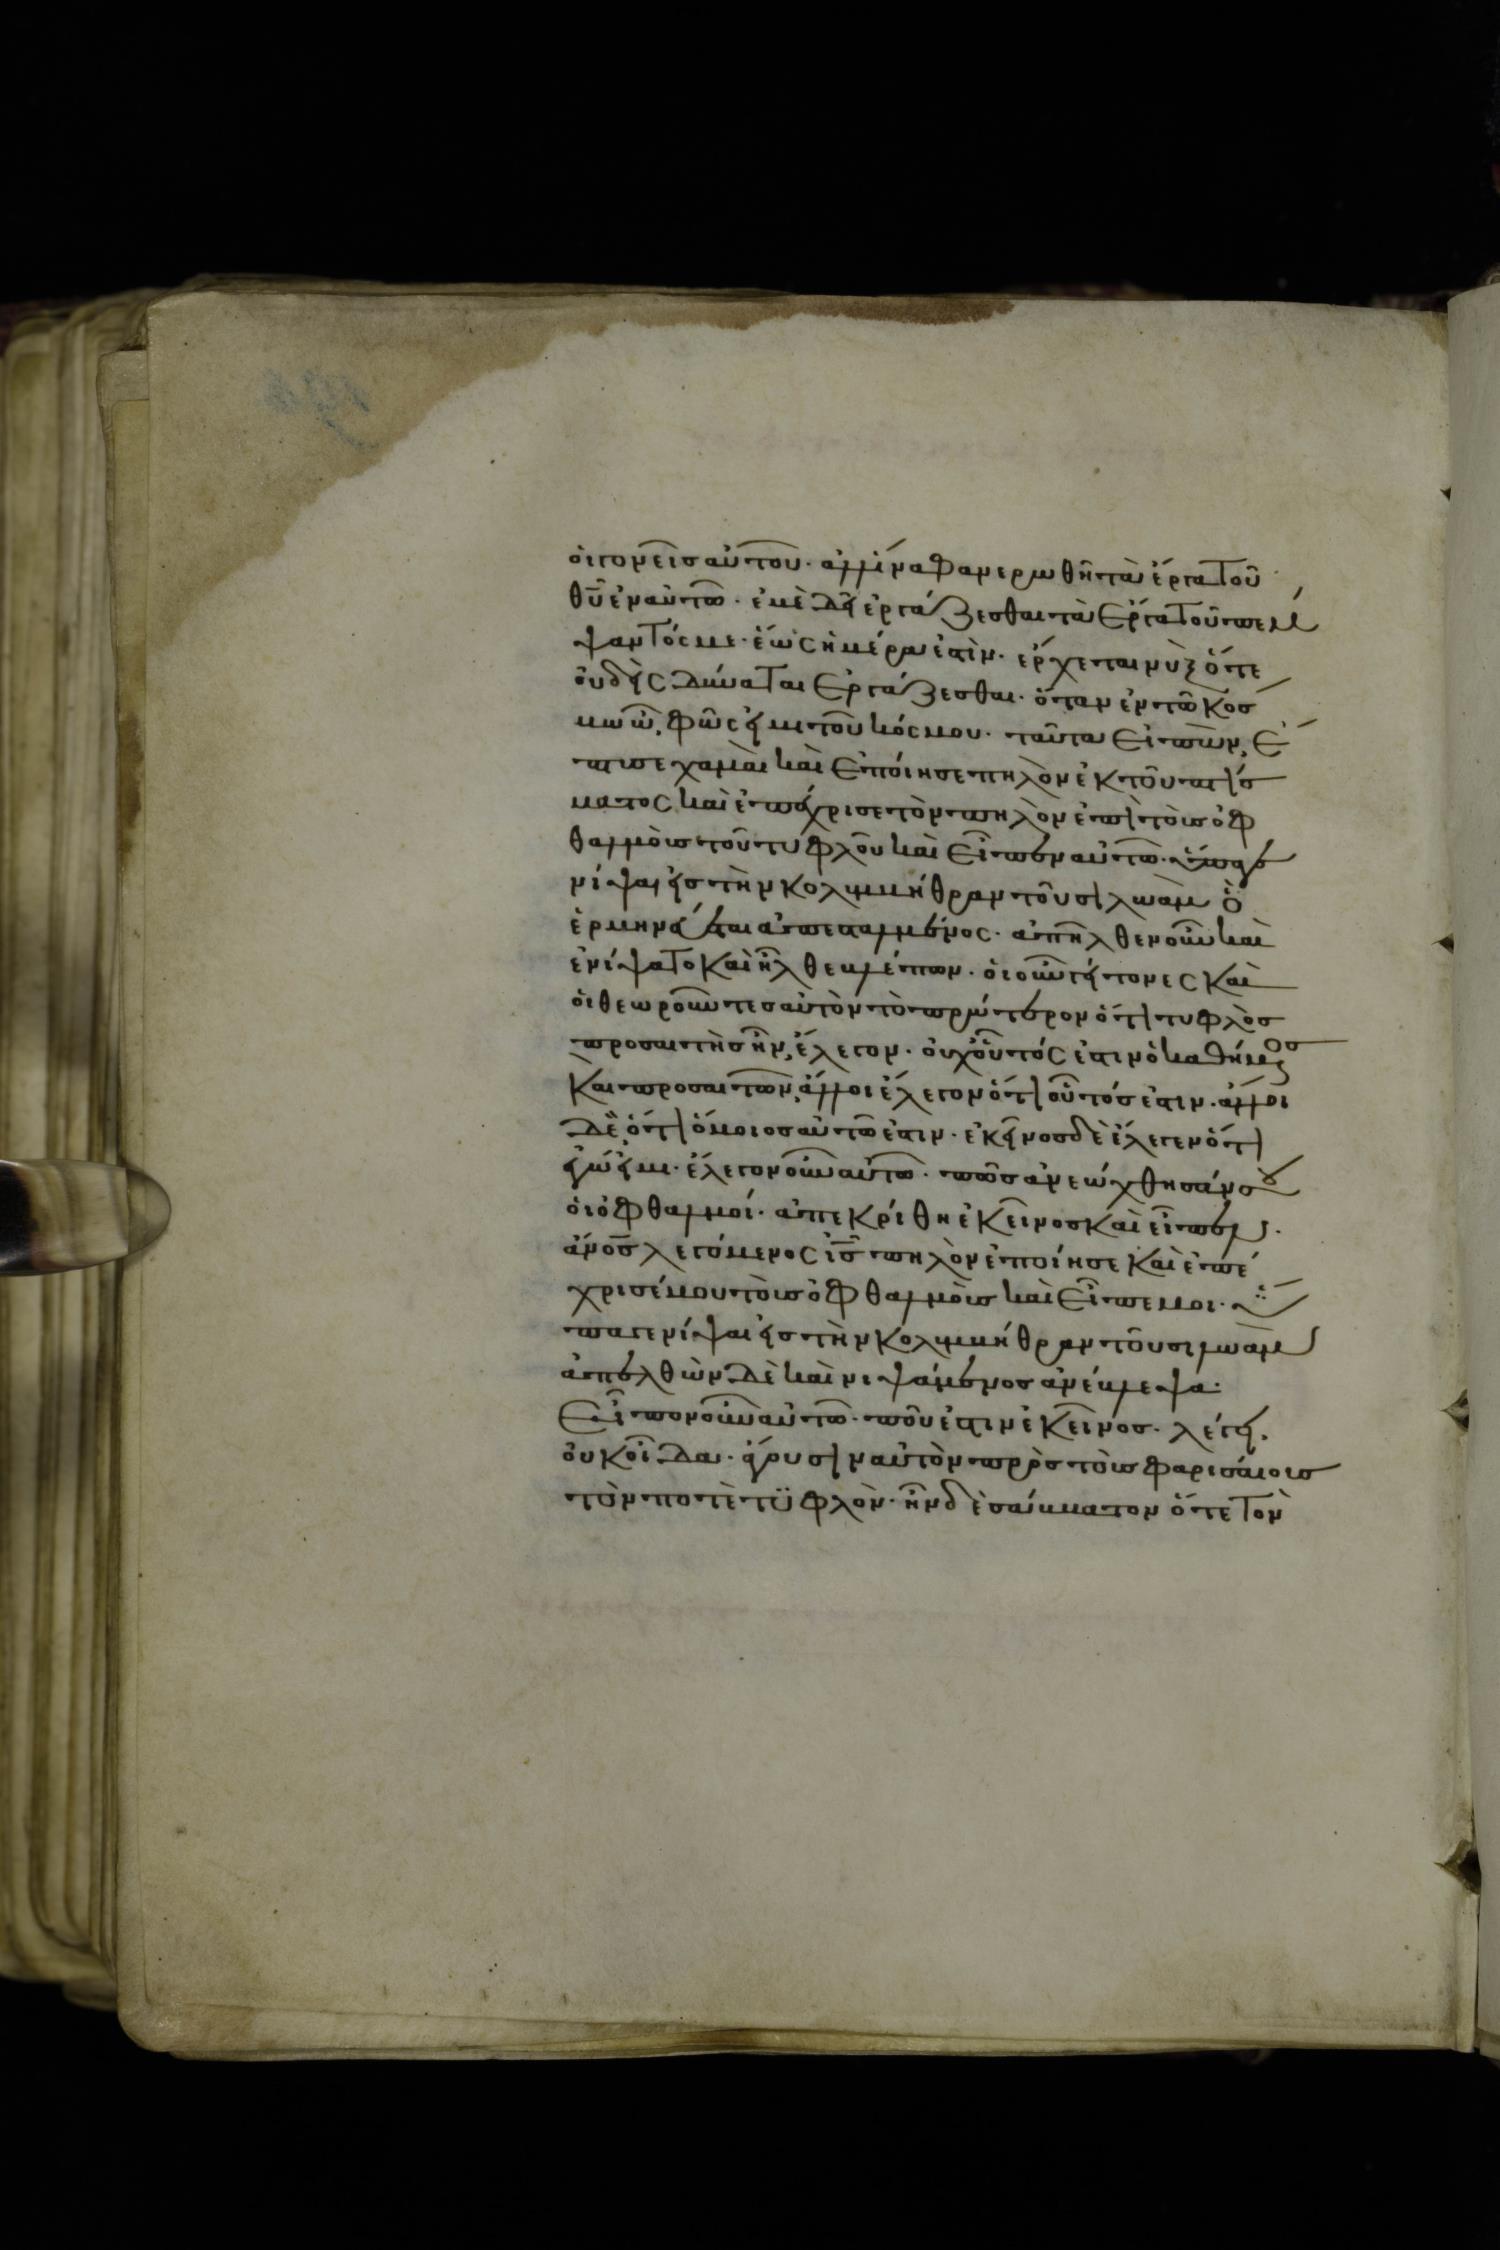 οἱ γονεῖσ αὐτοῦ· ἀλλ ἵνα φανερωθῆ τὰ ἔργα τοῦ
θυ ἐν αὐτῶ· ἐμὲ δεῖ ἐργάζεσθαι τὰ ἔργα τοῦ πέμ
ψαντός με· ἕως ἡμέρα ἐστὶν· ἔρχεται νὺξ ὅτε
οὐδεὶς δύναται ἐργάζεσθαι· ὅταν ἐν τῶ κόσ
μω ὦ, φῶς εἰμι τοῦ κόσμου· ταῦτα εἰπὼν, ἔ
πτυσε χαμαὶ καὶ ἐποίησε πηλὸν ἐκ τοῦ πτύσ
ματος καὶ ἐπέχρισε τὸν πηλὸν ἐπὶ τοὺσ ὀφ
θαλμοὺσ τοῦ τυφλοῦ καὶ εἶπεν αὐτῶ· ὕπαγε
νίψαι εἰσ τὴν κολυμβήθραν τοῦ σιλωὰμ ὃ
ἑρμηνεύεται ἀπεσταλμένος· ἀπῆλθεν οὖν καὶ
ἐνίψατο καὶ ἦλθε βλέπων· οἱ οὖν γείτονες καὶ
οἱ θεωροῦντεσ αὐτὸν τὸ πρότερον ὅτι τυφλὸσ
προσαίτησ ἦν, ἔλεγον· οὐχ οὗτός ἐστιν ὁ καθήμενοσ
καὶ προσαιτῶν, ἄλλοι ἔλεγον ὅτι οὗτόσ ἐστιν· ἄλλοι
δὲ, ὅτι ὅμοιοσ αὐτῶ ἐστιν· ἐκεῖνοσ δὲ ἔλεγεν ὅτι
ἐγώ εἰμι· ἔλεγον οὖν αὐτῶ· πῶσ ἀνεώχθησάν σου
οἱ ὀφθαλμοί· ἀπεκρίθη ἐκεῖνοσ καὶ εἶπεν·
ἄνοσ λεγόμενος ισ πηλὸν ἐποίησε καὶ ἐπέ
χρισέ μου τοὺσ ὀφθαλμοὺσ καὶ εἶπε μοι· ὕ
παγε νίψαι εἰσ τὴν κολυμβήθραν τοῦ σιλωὰμ
ἀπελθὼν δὲ καὶ νιψάμενοσ ἀνέβλεψα·
εἶπον οὖν αὐτῶ· ποῦ ἐστιν ἐκεῖνοσ· λέγει,
οὐκ οἶδα· ἄγουσιν αὐτὸν πρὸσ τοὺσ φαρισαίουσ
τόν ποτὲ τϋφλὸν· ἦν δὲ σάββατον ὅτε τὸν